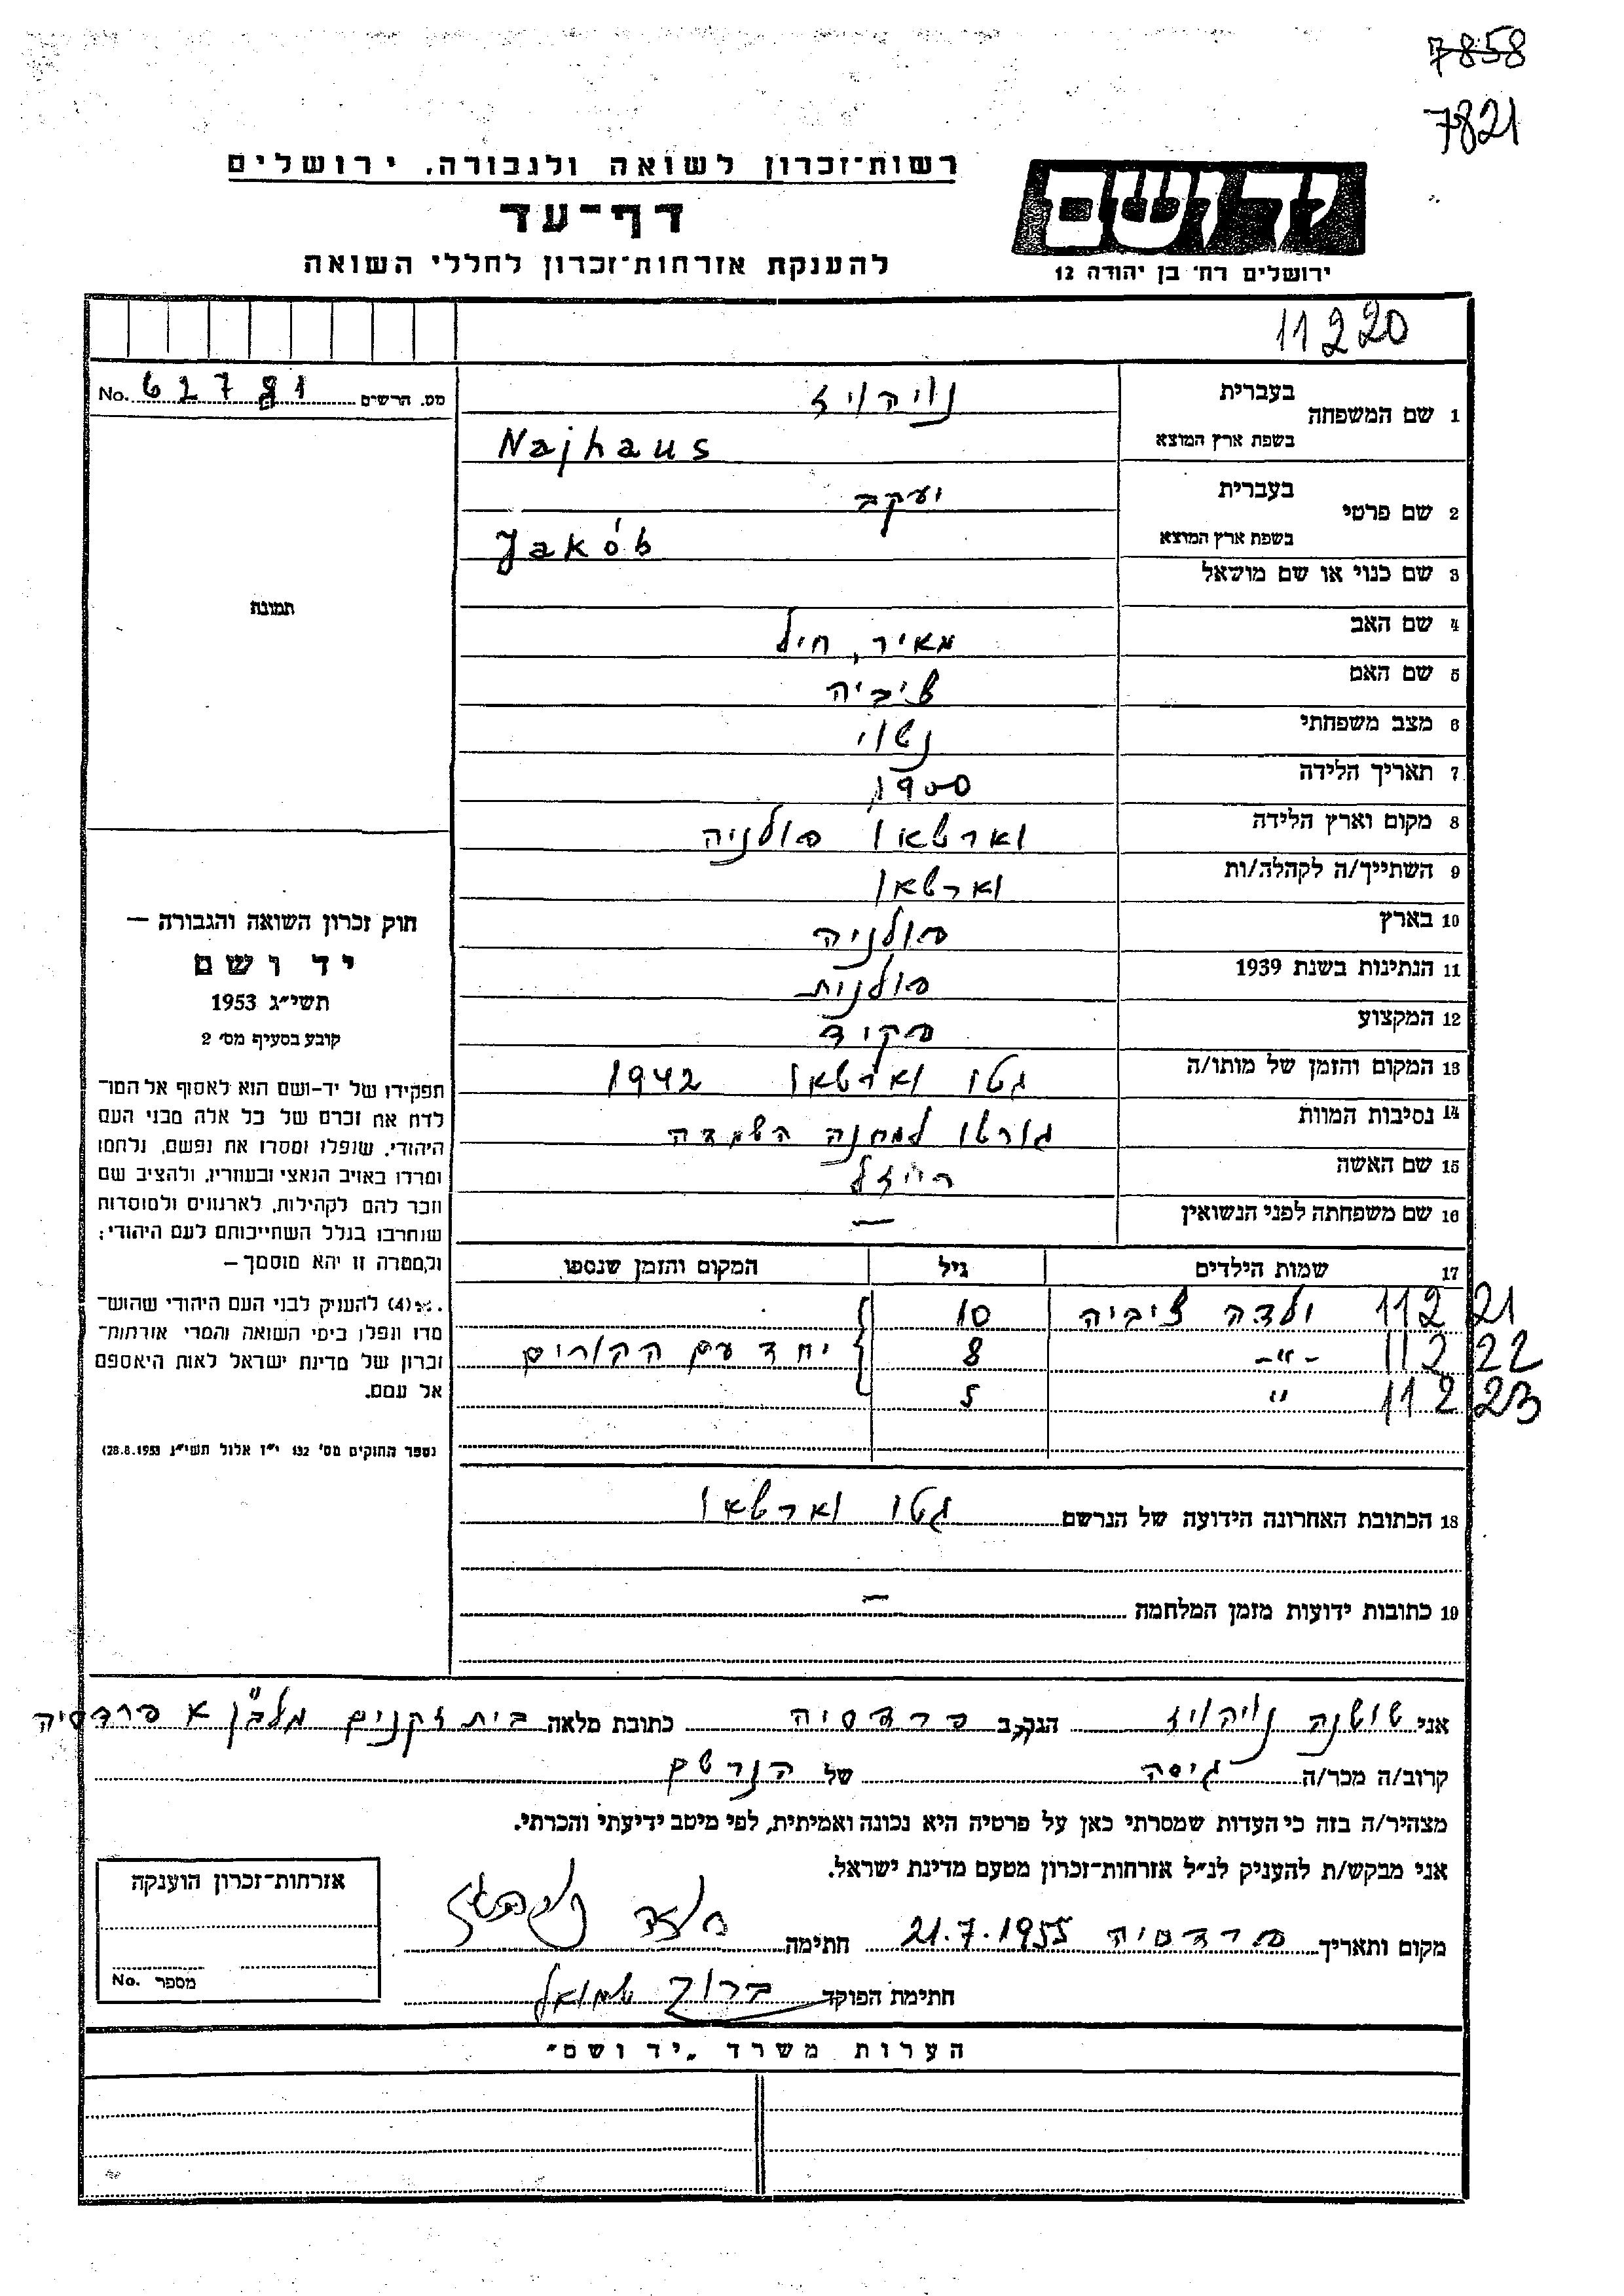 7858
7821
רשות־זכרון לשואה ולגבורה, ירושלים
דף־עד
להענקת אזרחות־זכרון לחללי השואה
יד ושם
ירושלים רח׳ בן יהודה 12
11220
מס. הרשים No. 62781
1 שם המשפחה בעברית נויהויז
בשפת ארץ המוצא Najhaus
2 שם פרטי בעברית יעקב
בשפת ארץ המוצא Jakób
3 שם כנוי או שם מושאל
4 שם האב מאיר, חיל
5 שם האם ציביה
6 מצב משפחתי נשוי
7 תאריך הלידה 1900
8 מקום וארץ הלידה וארשאו פולניה
9 השתייך/ה לקהלה/ות וארשאו
10 בארץ פולניה
11 הנתינות בשנת 1939 פולנית
12 המקצוע פקיד
13 המקום והזמן של מותו/ה גטו וארשאו 1942
14 נסיבות המוות גורשו למחנה השמדה
15 שם האשה רייזל
16 שם משפחתה לפני הנשואין —
17 שמות הילדים גיל המקום והזמן שנספו
11221 ילדה ציביה 10
11222 -"- 8 יחד עם ההורים
11223 " 5
18 הכתובת האחרונה הידועה של הנרשם גטו וארשאו
19 כתובות ידועות מזמן המלחמה —
תמונה
חוק זכרון השואה והגבורה —
יד ושם
תשי״ג 1953
קובע בסעיף מס׳ 2
תפקידו של יד-ושם הוא לאסוף אל המו־
לדת את זכרם של כל אלה מבני העם
היהודי, שנפלו ומסרו את נפשם, נלחמו
ומרדו באויב הנאצי ובעוזריו, ולהציב שם
וזכר להם לקהילות, לארגונים ולמוסדות
שנחרבו בגלל השתייכותם לעם היהודי;
ולמטרה זו יהא מוסמך —
(4) להעניק לבני העם היהודי שהוש־
מדו ונפלו בימי השואה והמרי אזרחות־
זכרון של מדינת ישראל לאות היאספם
אל עמם.
(ספר החוקים מס׳ 132 י״ז אלול תשי״ג 28.8.1953)
אני שושנה נויהויז הגר/ב פרדסיה כתובת מלאה בית זקנים מלב"ן א פרדסיה
קרוב/ה מכר/ה גיסה של הנרשם
מצהיר/ה בזה כי העדות שמסרתי כאן על פרטיה היא נכונה ואמיתית, לפי מיטב ידיעתי והכרתי.
אני מבקש/ת להעניק לנ״ל אזרחות־זכרון מטעם מדינת ישראל.
מקום ותאריך פרדסיה 21.7.1955 חתימה
חתימת הפוקד ברוך שמואל
אזרחות־זכרון הוענקה
מספר No.
הערות משרד „יד ושם״